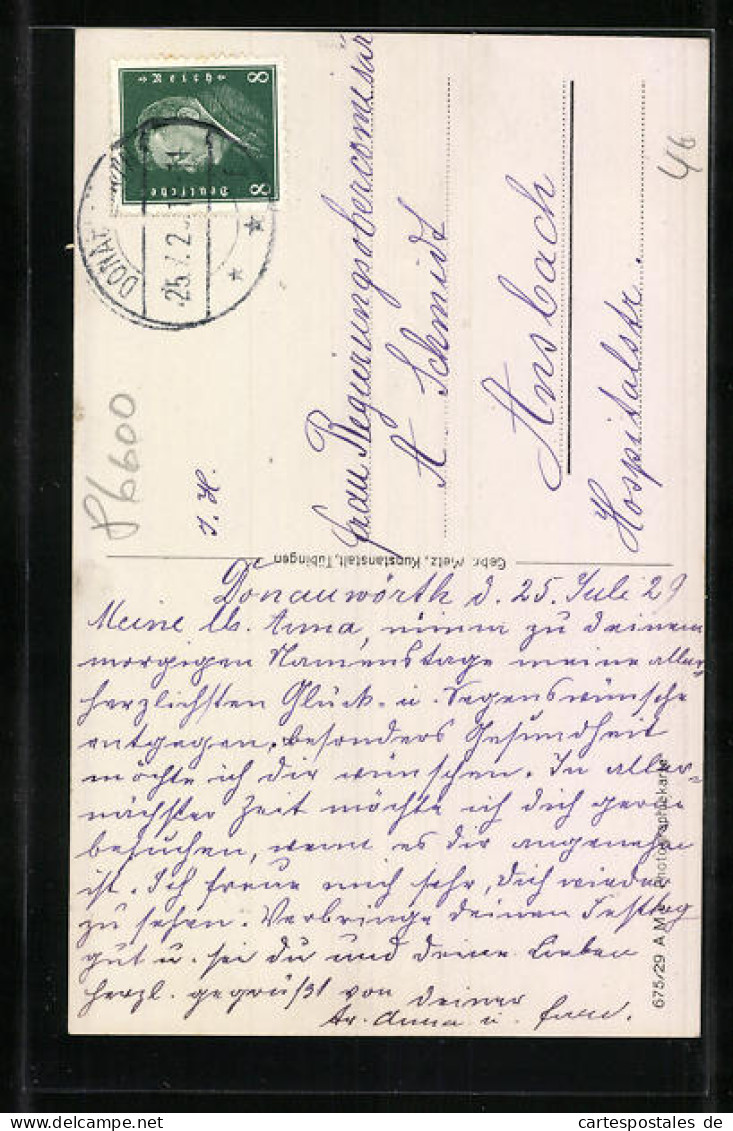 8 Reich 8
Deutsche
DONAU
25.7.2
46
P6600
J. H.
Frau Regierungsobercomesär
A Schmidt
Ansbach
Hospitalstr.
Gebr. Metz, Kunstanstalt, Tübingen
Donauwörth d. 25. Juli 29
Meine lb. Anna, nimm zu deinem
morgigen Namenstage meine aller-
herzlichsten Glück- u. Segenswünsche
entgegen, besonders Gesundheit
möchte ich dir wünschen. In aller-
nächster Zeit möchte ich dich gerne
besuchen, wenn es dir angenehm
ist. Ich freue mich sehr, dich wieder
zu sehen. Verbringe deinen Festtag
gut u. sei du und deine Lieben
herzl. gegrüßt von deiner
Anna u.
675/29 A M Photographiekarte
cartespostales.de